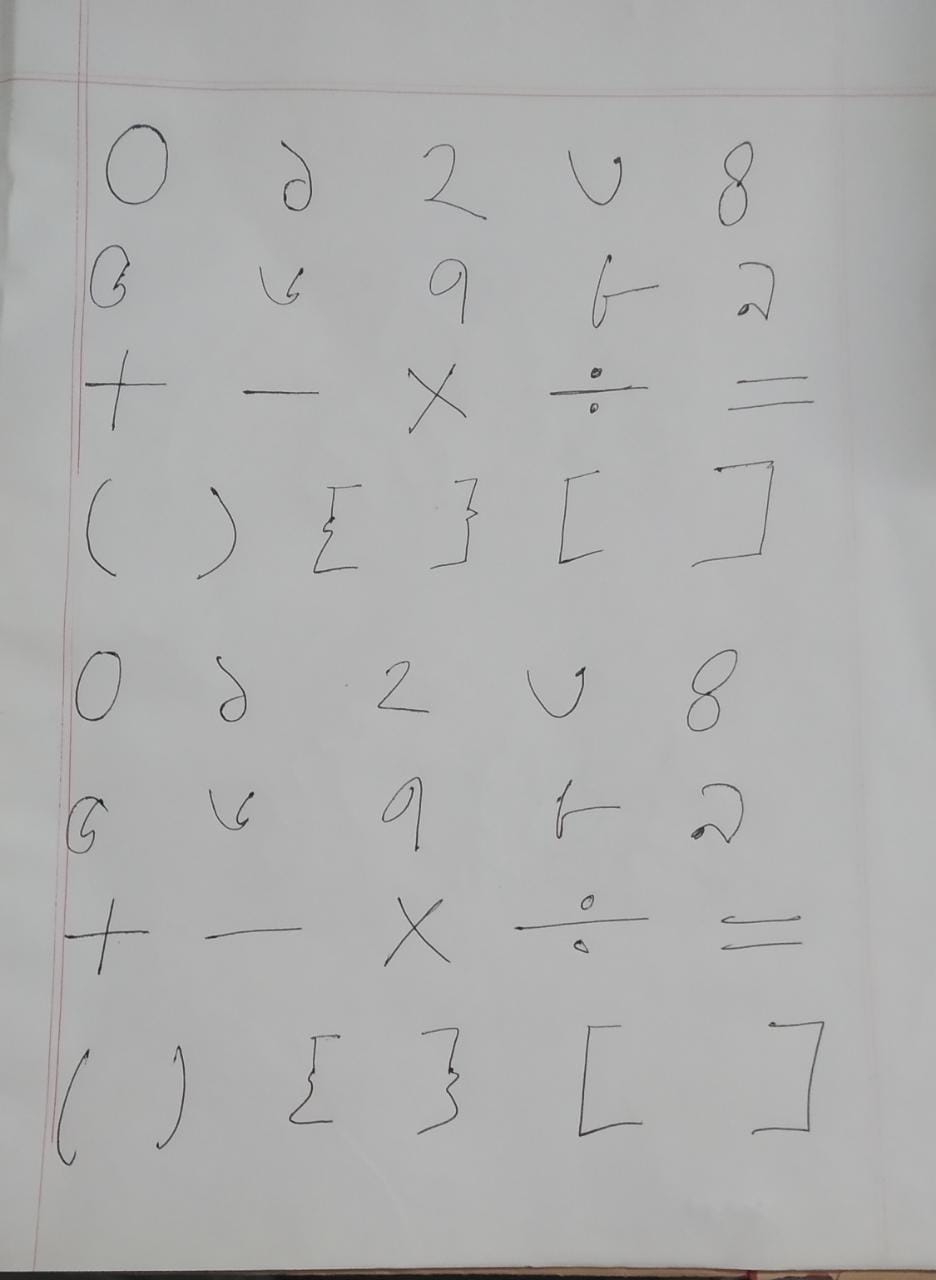 ০ ১ ২ ৩ ৪
৫ ৬ ৭ ৮ ৯
+ − × ÷ =
( ) { } [ ]
০ ১ ২ ৩ ৪
৫ ৬ ৭ ৮ ৯
+ − × ÷ =
( ) { } [ ]